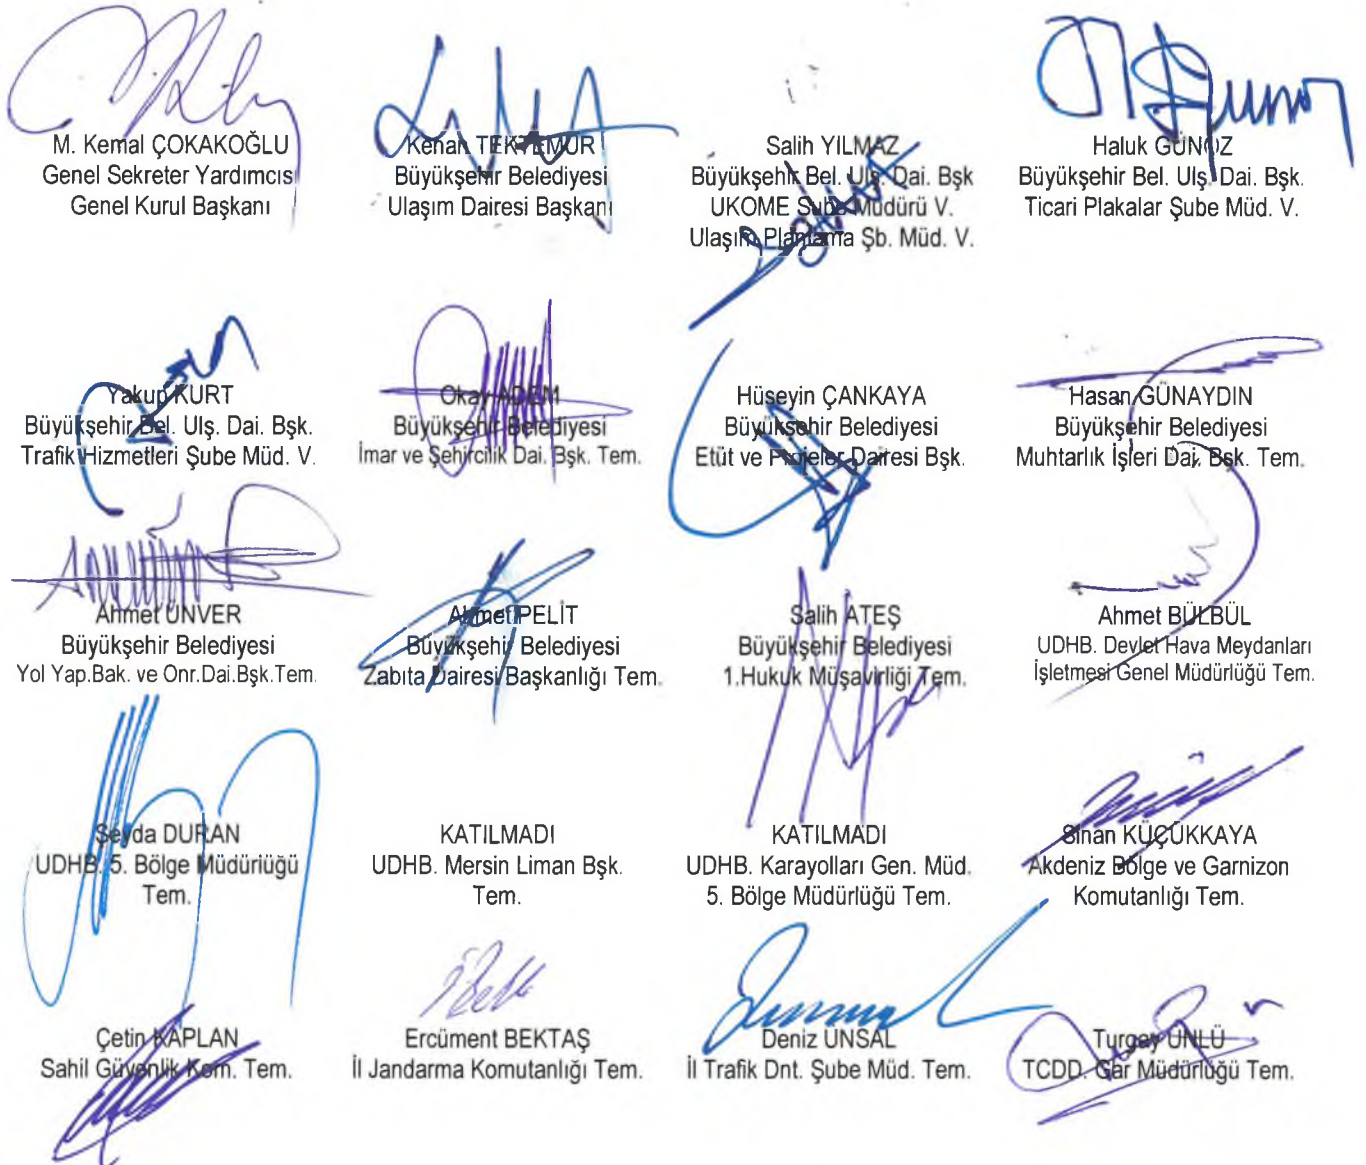 M. Kemal ÇOKAKOĞLU
Genel Sekreter Yardımcısı
Genel Kurul Başkanı
Kenan TEKTEMUR
Büyükşehir Belediyesi
Ulaşım Dairesi Başkanı
Salih YILMAZ
Büyükşehir Bel. Ulş. Dai. Bşk
UKOME Şube Müdürü V.
Ulaşım Planlama Şb. Müd. V.
Haluk GÜNÖZ
Büyükşehir Bel. Ulş. Dai. Bşk.
Ticari Plakalar Şube Müd. V.
Yakup KURT
Büyükşehir Bel. Ulş. Dai. Bşk.
Trafik Hizmetleri Şube Müd. V.
Okay ADEM
Büyükşehir Belediyesi
İmar ve Şehircilik Dai. Bşk. Tem.
Hüseyin ÇANKAYA
Büyükşehir Belediyesi
Etüt ve Projeler Dairesi Bşk.
Hasan GÜNAYDIN
Büyükşehir Belediyesi
Muhtarlık İşleri Dai. Bşk. Tem.
Ahmet ÜNVER
Büyükşehir Belediyesi
Yol Yap.Bak. ve Onr.Dai.Bşk.Tem.
Ahmet PELİT
Büyükşehir Belediyesi
Zabıta Dairesi Başkanlığı Tem.
Salih ATEŞ
Büyükşehir Belediyesi
1.Hukuk Müşavirliği Tem.
Ahmet BÜLBÜL
UDHB. Devlet Hava Meydanları
İşletmesi Genel Müdürlüğü Tem.
Şeyda DURAN
UDHB. 5. Bölge Müdürlüğü
Tem.
KATILMADI
UDHB. Mersin Liman Bşk.
Tem.
KATILMADI
UDHB. Karayolları Gen. Müd.
5. Bölge Müdürlüğü Tem.
Sinan KÜÇÜKKAYA
Akdeniz Bölge ve Garnizon
Komutanlığı Tem.
Çetin KAPLAN
Sahil Güvenlik Kom. Tem.
Ercüment BEKTAŞ
İl Jandarma Komutanlığı Tem.
Deniz ÜNSAL
İl Trafik Dnt. Şube Müd. Tem.
Turgay ÜNLÜ
TCDD. Gar Müdürlüğü Tem.